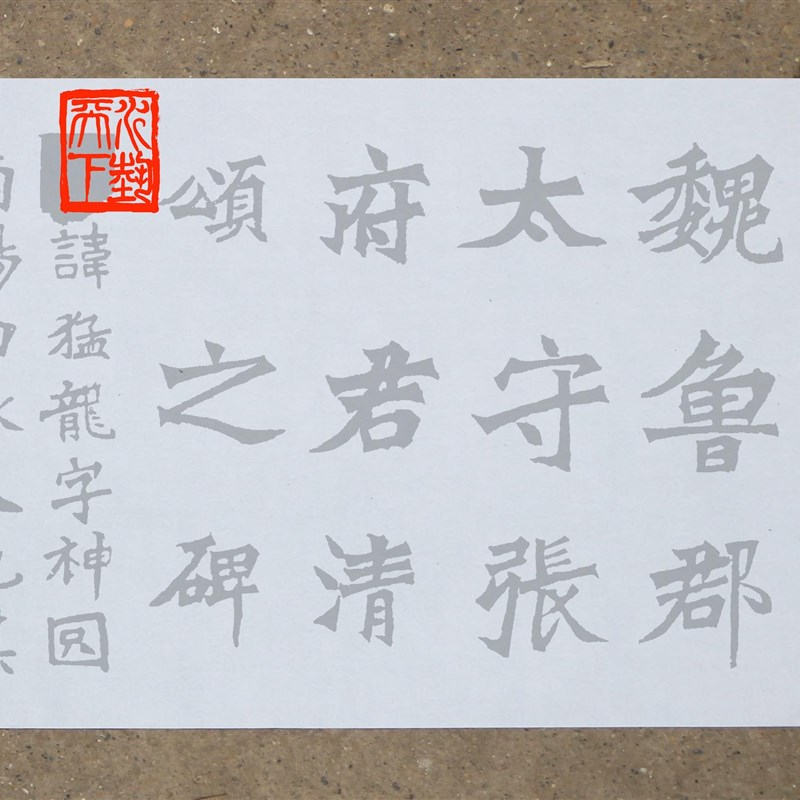 魏魯郡
太守張
府君清
頌之碑
諱猛龍字神囧
天下